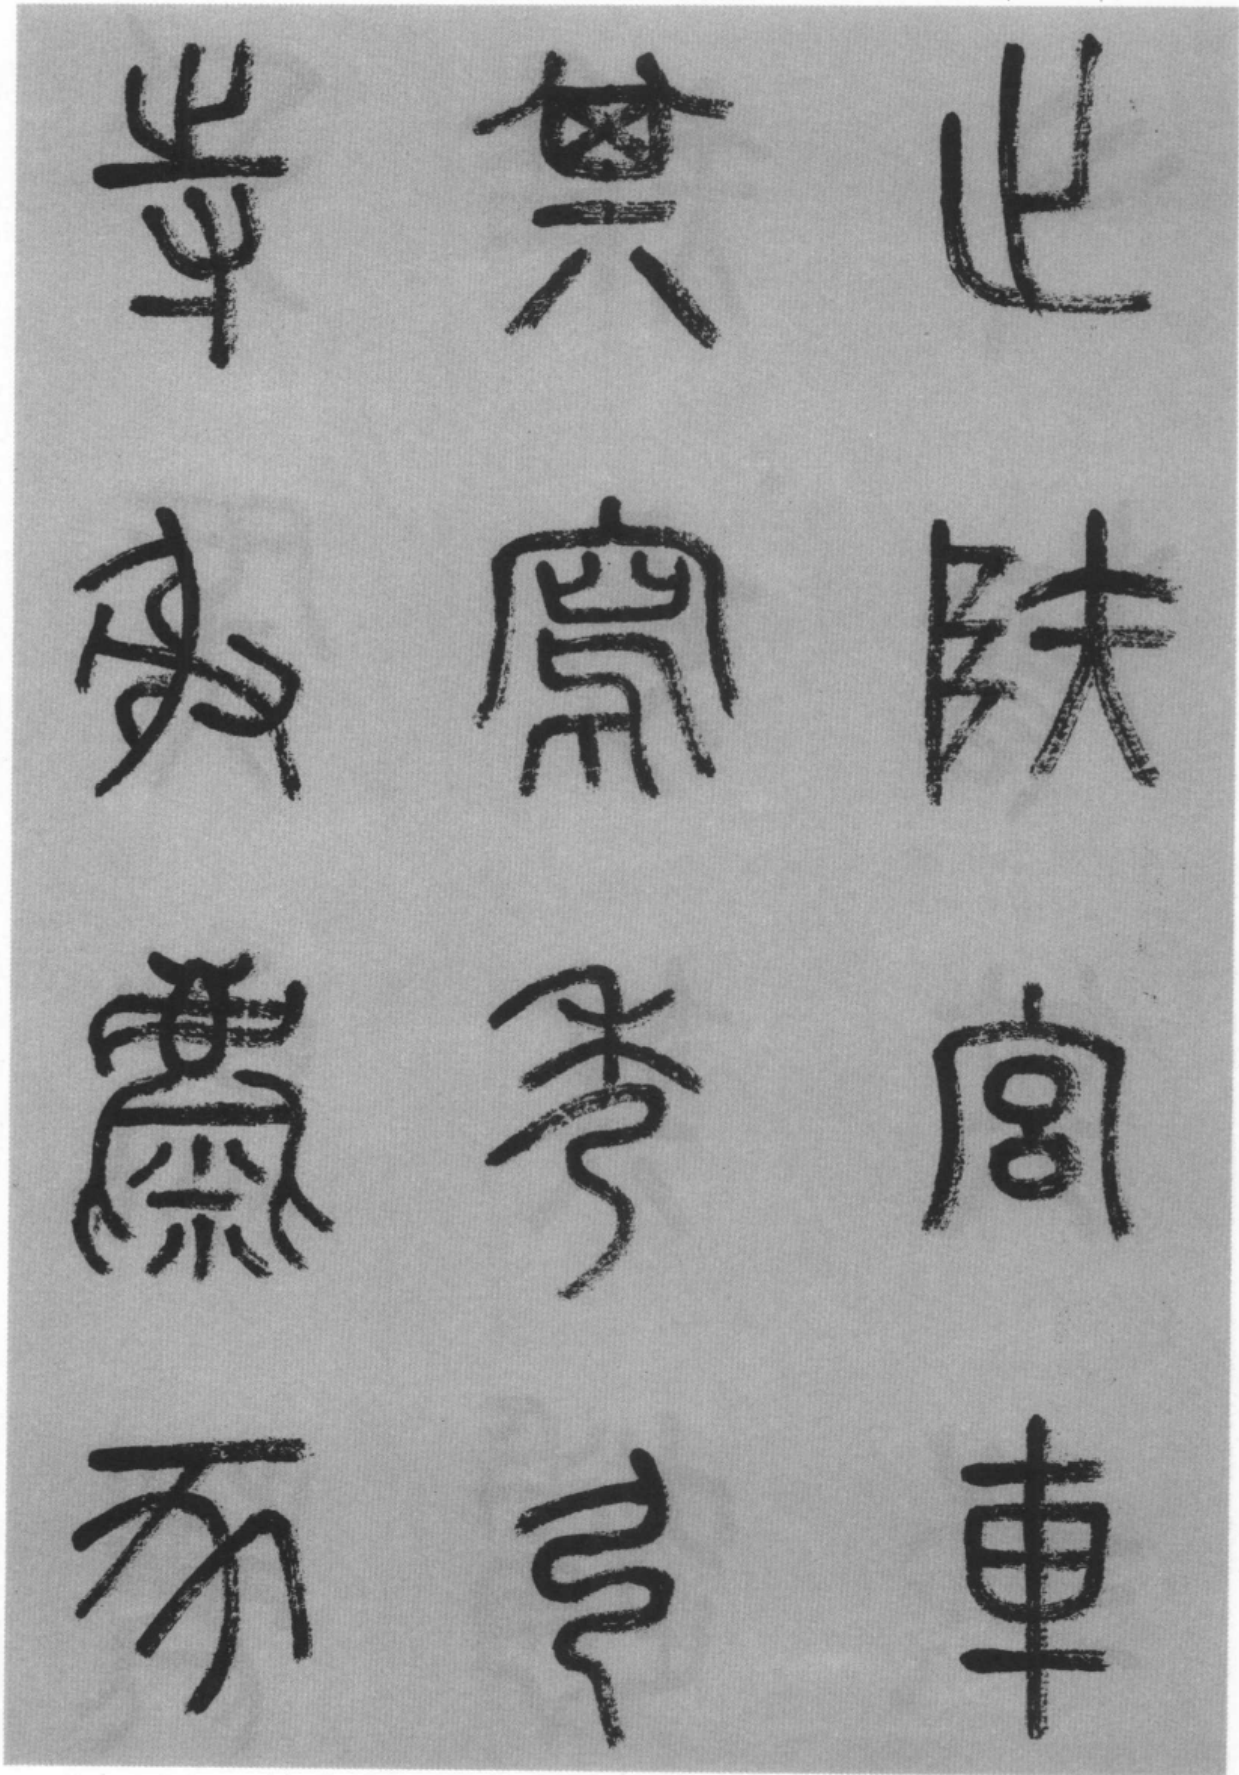 止陕宮車
其寫秀弓
寺射麋豕